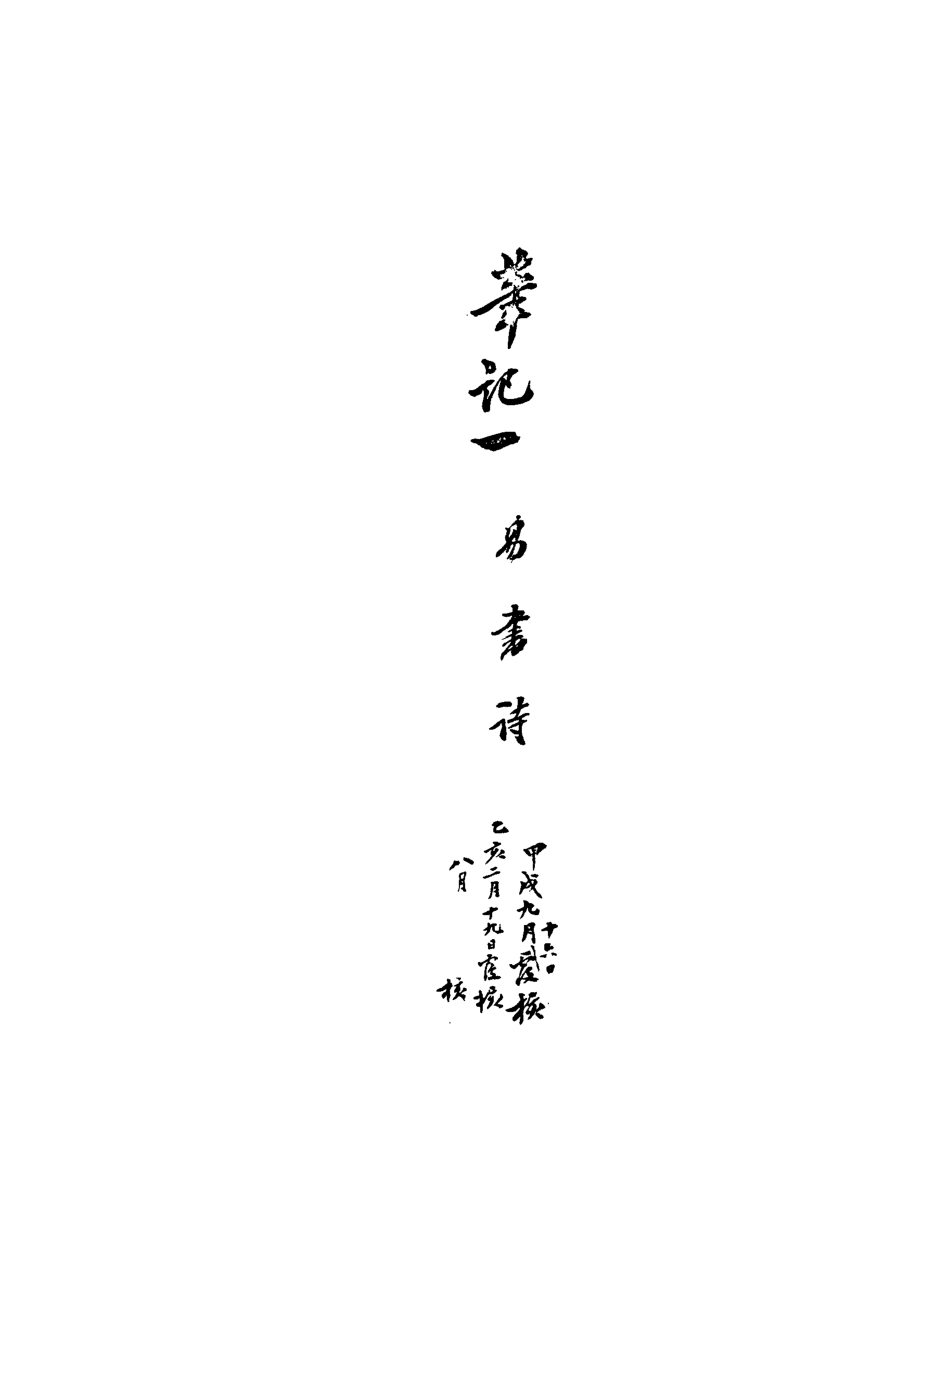 筆記一　易　書　詩
甲戌九月十六日覆核
乙亥二月十九日覆核
八月　核